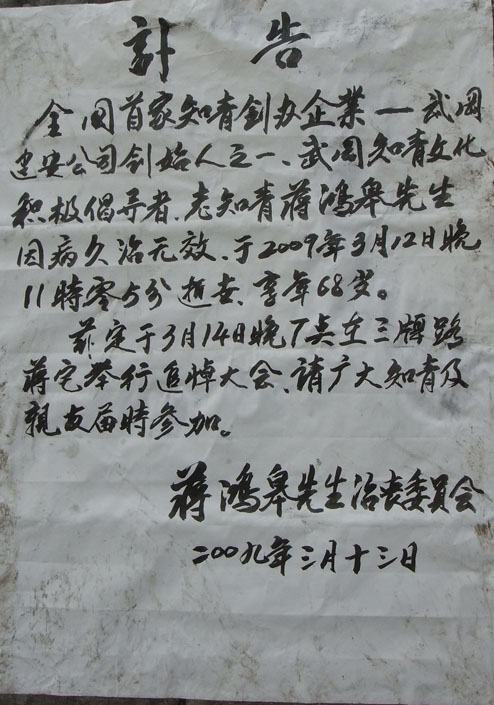 訃告
全国首家知青創办企業—武冈
建安公司创始人之一、武冈知青文化
积极倡导者、老知青蒋鴻皋先生
因病久治无效、于2009年3月12日晚
11時零5分逝去、享年68岁。
兹定于3月14日晚7点在三牌路
蒋宅举行追悼大会、請广大知青及
親友届時参加。
蒋鴻皋先生治丧委員会
二00九年三月十三日